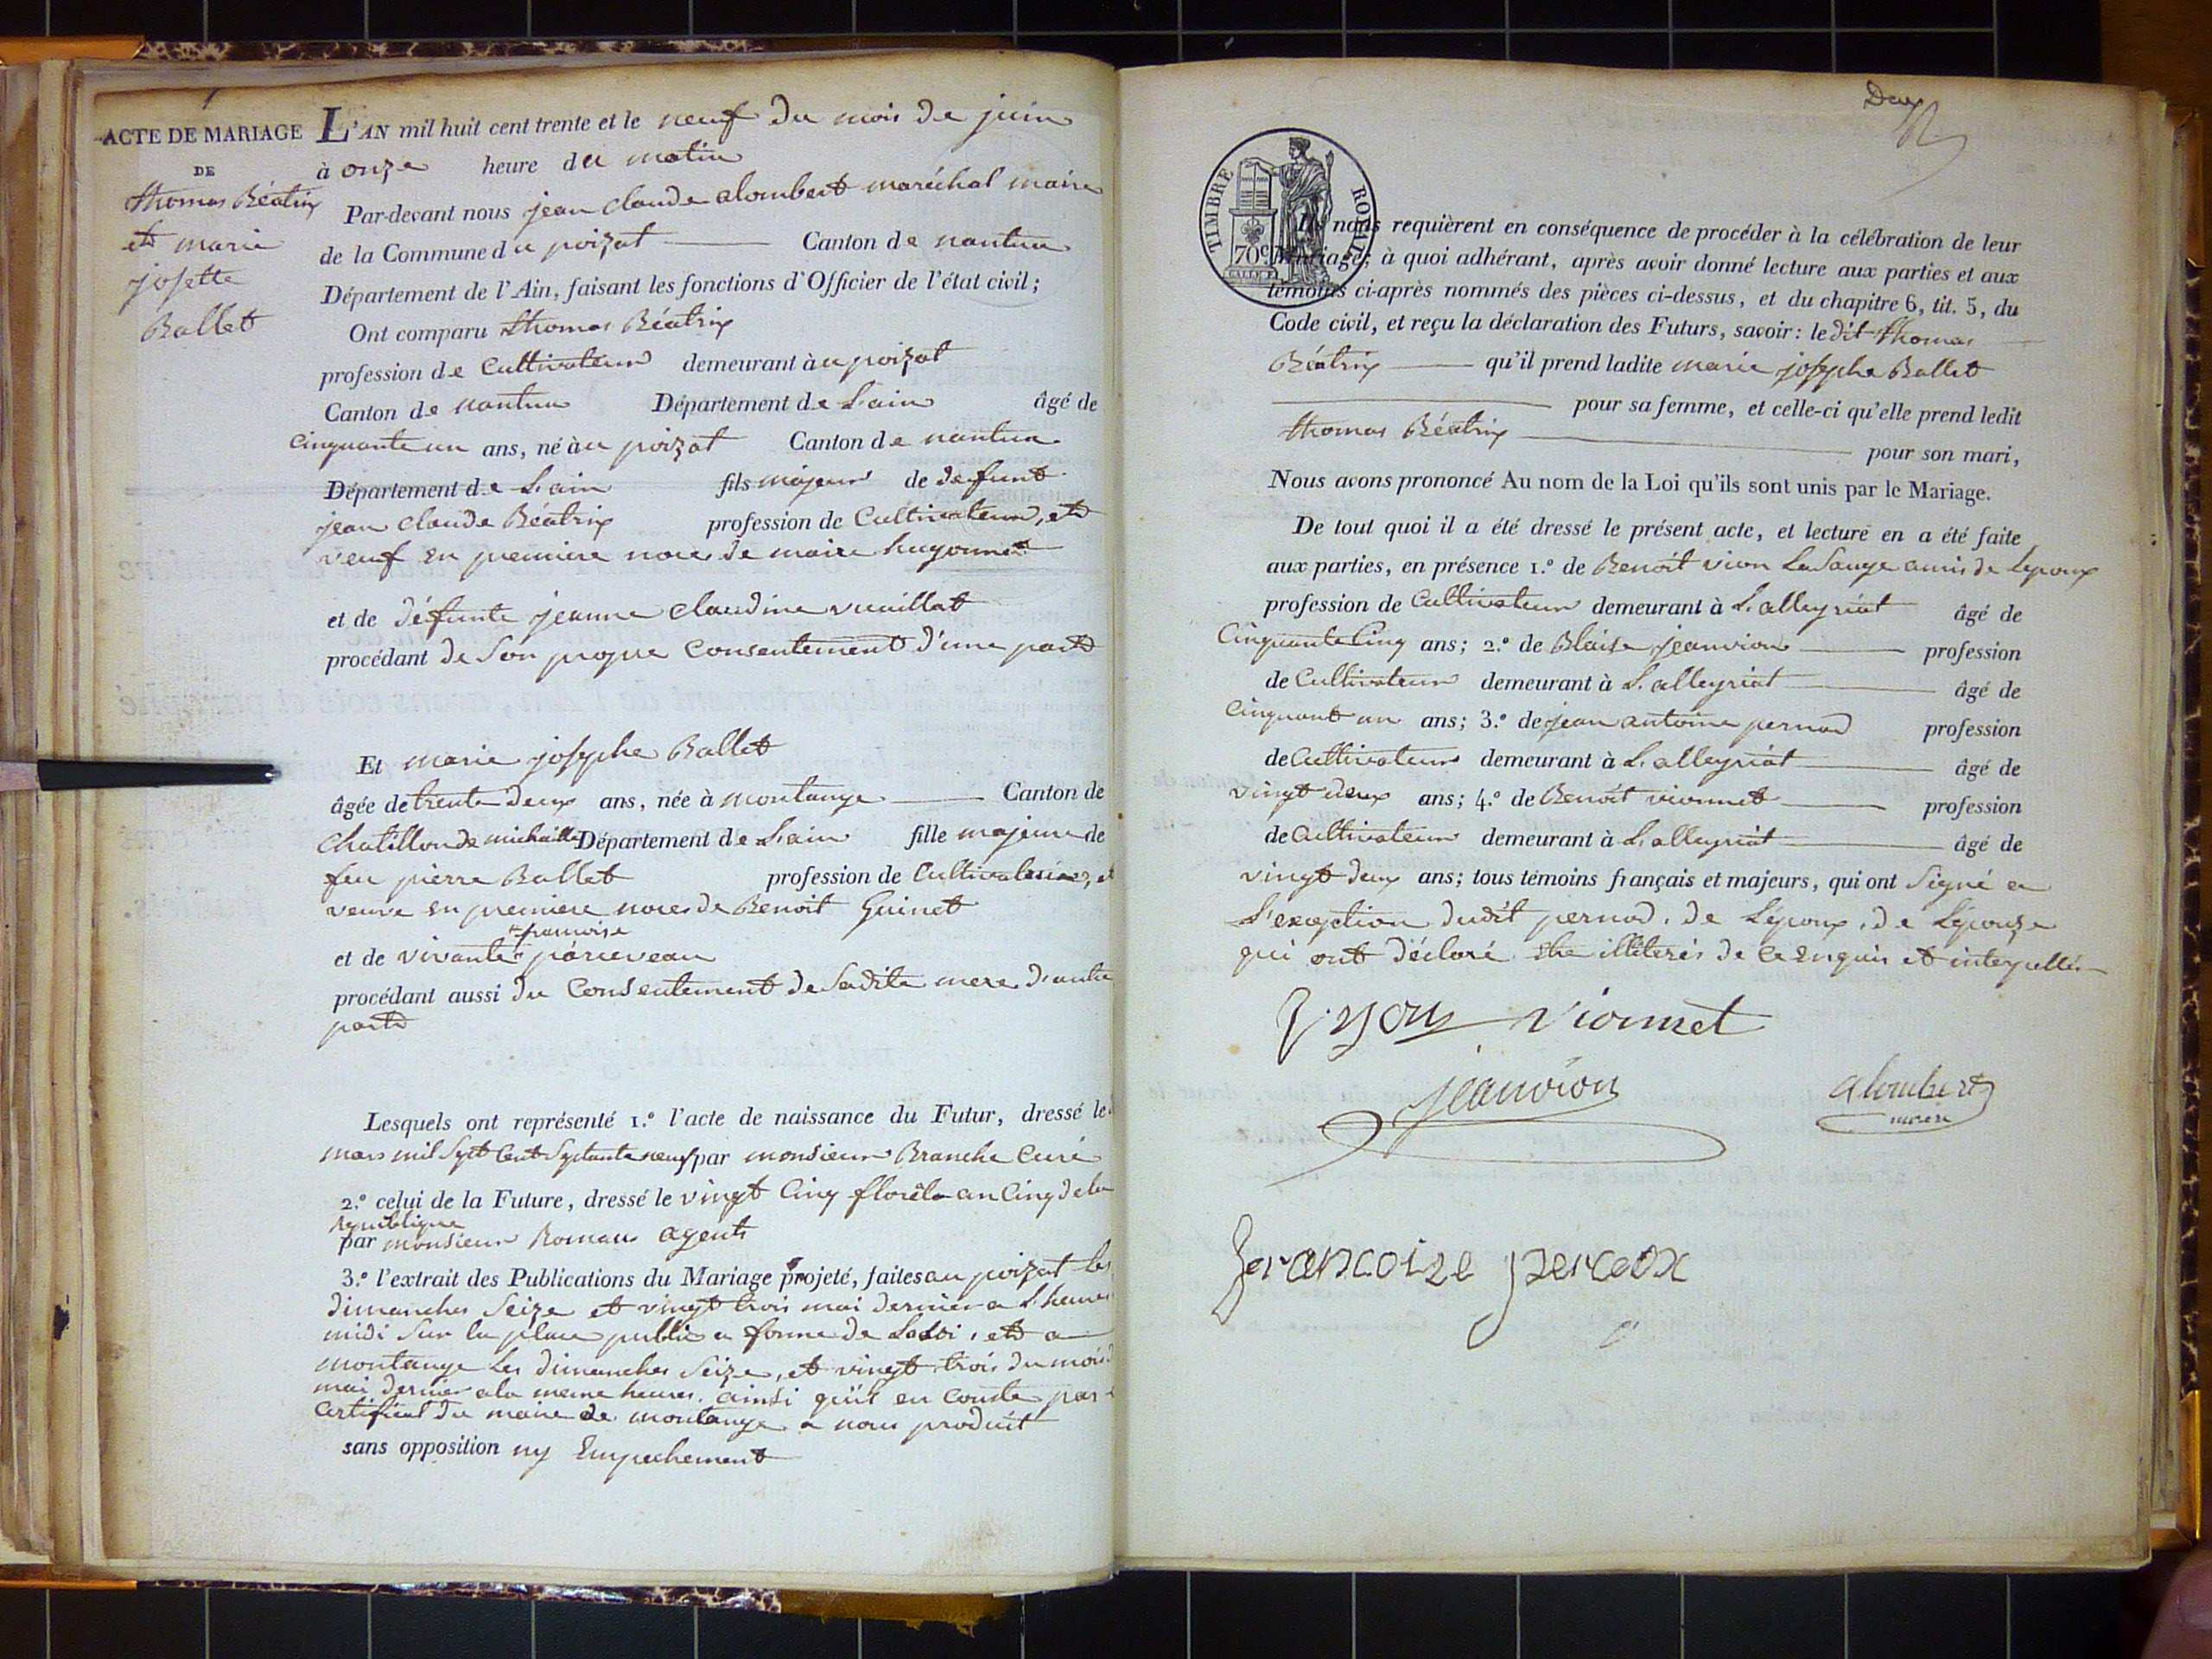 ACTE DE MARIAGE
DE
thomas Béatrix
et marie
josette
Ballet
L'AN mil huit cent trente et le neuf du mois de juin
à onze heure du matin
Par-devant nous jean claude alombert maréchal maire
de la Commune du poizat Canton de nantua
Département de l'Ain, faisant les fonctions d'Officier de l'état civil;
Ont comparu thomas Béatrix
profession de Cultivateur demeurant au poizat
Canton de nantua Département de L'ain âgé de
cinquante un ans, né au poizat Canton de nantua
Département de L'ain fils majeur de defunt
jean claude Béatrix profession de Cultivateur, et
veuf en premiere noce de maire hugonnet
et de défunte jeanne claudine vuaillat
procédant de Son propre Consentement d'une part
Et marie josephe Ballet
âgée de trente deux ans, née à montange Canton de
Chatillon de michaille Département de L'ain fille majeure de
feu pierre Ballet profession de Cultivateur, et
veuve en premiere noces de Benoit Guinet
françoise
et de vivante
procédant aussi du Consentement de Sadite mere d'autre
part
Lesquels ont représenté 1.° l'acte de naissance du Futur, dressé le
mars mil Sept Cent Septante neuf par monsieur Branche Curé
2.° celui de la Future, dressé le vingt Cinq floréla an Cinq de la
Republique
par monsieur Roman agent
3.° l'extrait des Publications du Mariage projeté, faites au poizat les
dimanches Seize et vingt trois mai dernier a L'heure
midi Sur la place public a forme de La Loi, et a
montange Les dimanches Seize, et vingt trois du mois
mai dernier a la meme heures. ainsi qu'il en conste par
Certificat du maire de montange a nous produit
sans opposition ny Empechement
Deux
TIMBRE ROYAL
70 C
Ils nous requièrent en conséquence de procéder à la célébration de leur
Mariage; à quoi adhérant, après avoir donné lecture aux parties et aux
témoins ci-après nommés des pièces ci-dessus, et du chapitre 6, tit. 5, du
Code civil, et reçu la déclaration des Futurs, savoir: le dit thomas
Béatrix qu'il prend ladite marie josephe Ballet
pour sa femme, et celle-ci qu'elle prend ledit
thomas Béatrix
pour son mari,
Nous avons prononcé Au nom de la Loi qu'ils sont unis par le Mariage.
De tout quoi il a été dressé le présent acte, et lecture en a été faite
aux parties, en présence 1.° de Benoît vion LaSauge amis de Lepoux
profession de Cultivateur demeurant à L'alleyriat âgé de
Cinquante Cinq ans; 2.° de Blaise jeanvion profession
de Cultivateur demeurant à L'alleyriat âgé de
Cinquant un ans; 3.° de jean antoine pernod profession
de Cultivateur demeurant à L'alleyriat âgé de
vingt deux ans; 4.° de Benoît vionnet profession
de Cultivateur demeurant à L'alleyriat âgé de
vingt deux ans; tous témoins français et majeurs, qui ont Signé a
L'exception dudit pernod, de Lépoux, de Lépouze
qui ont déclaré être illéterés de Ce Enquis et interpellés
vionnet
jeanvion
alombert
maire
francoize percoox